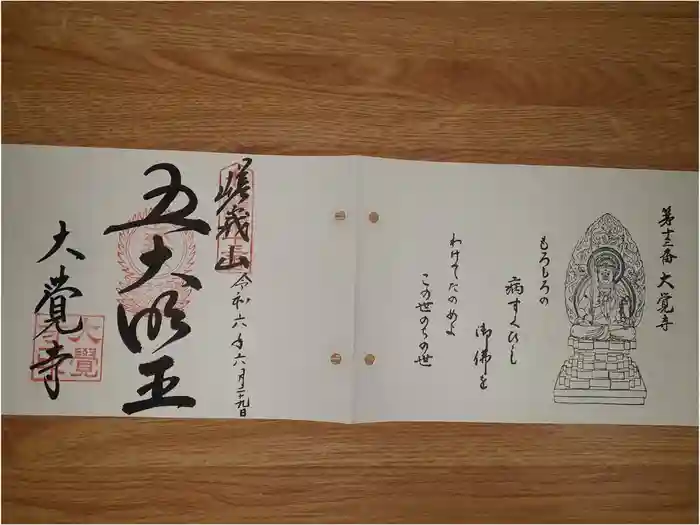 第十三番 大覚寺
もろもろの
病すくひし
御佛を
わけてたのめよ
この世のちの世
嵯峨山
令和六年六月二十九日
五大明王
大覺寺
大覺